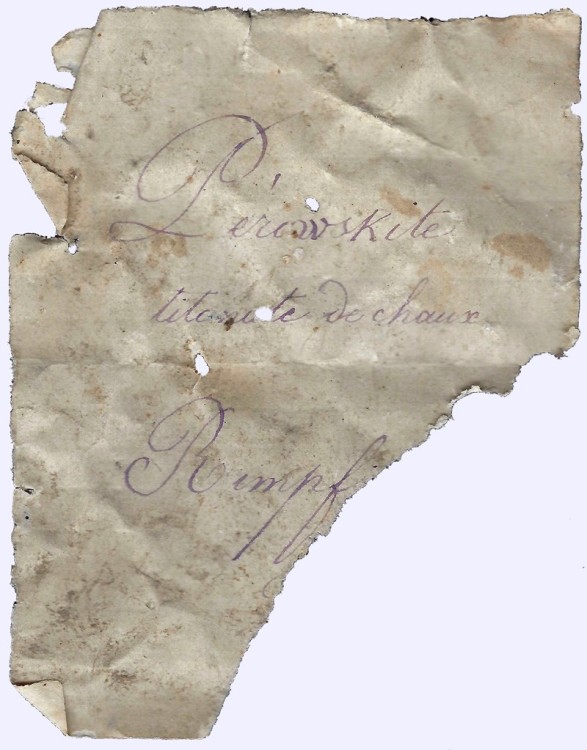 Pérowskite
titanate de chaux
Rimpf